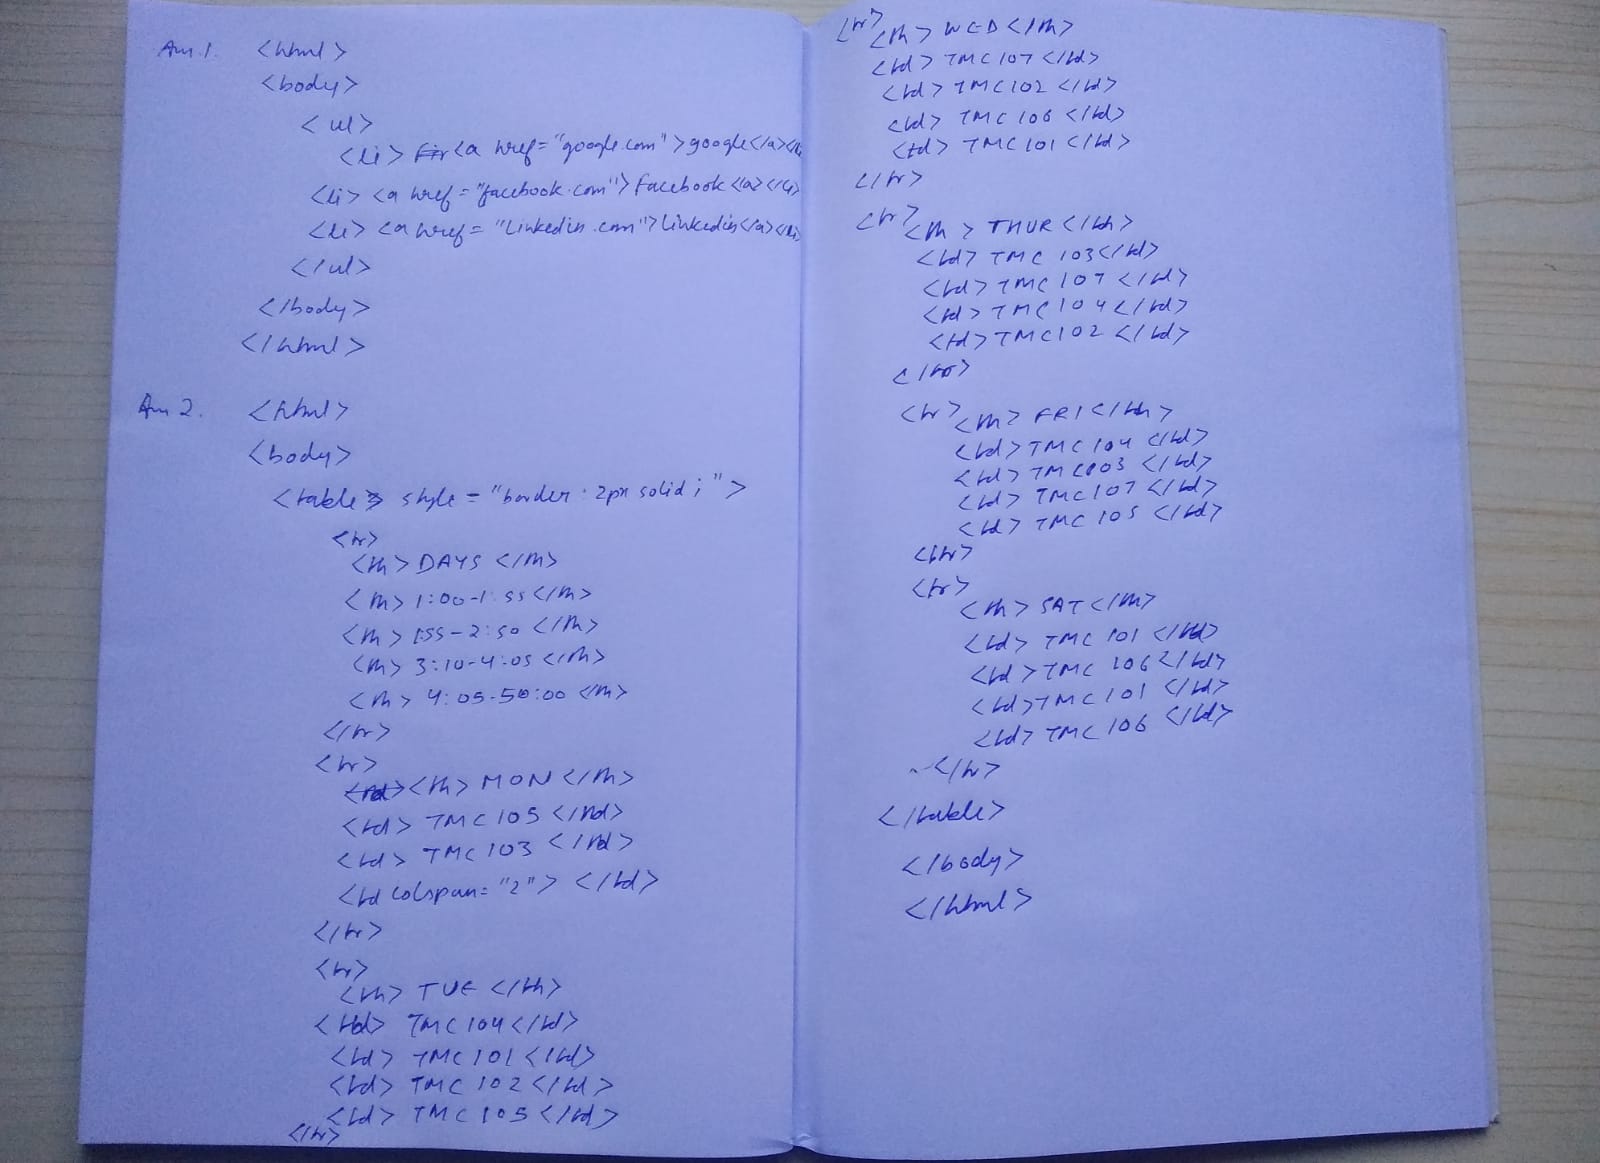 Ans 1. <html>
<body>
<ul>
<li> <a href="google.com">google</a></li
<li> <a href="facebook.com">Facebook</a></li>
<li> <a href="linkedin.com">linkedin</a></li>
</ul>
</body>
</html>
Ans 2. <html>
<body>
<table style="border: 2px solid;">
<tr>
<th> DAYS </th>
<th> 1:00-1:55</th>
<th> 1:55-2:50 </th>
<th> 3:10-4:05 </th>
<th> 4:05-5:00 </th>
</tr>
<tr>
<th> MON </th>
<td> TMC 105 </td>
<td> TMC 103 </td>
<td colspan="2"> </td>
</tr>
<tr>
<th> TUE </th>
<td> TMC 104 </td>
<td> TMC 101 </td>
<td> TMC 102 </td>
<td> TMC 105 </td>
</tr>
<tr>
<th> WED </th>
<td> TMC 107 </td>
<td> TMC 102 </td>
<td> TMC 106 </td>
<td> TMC 101 </td>
</tr>
<tr>
<th> THUR </th>
<td> TMC 103 </td>
<td> TMC 107 </td>
<td> TMC 104 </td>
<td> TMC 102 </td>
</tr>
<tr>
<th> FRI </th>
<td> TMC 104 </td>
<td> TMC 103 </td>
<td> TMC 107 </td>
<td> TMC 105 </td>
</tr>
<tr>
<th> SAT </th>
<td> TMC 101 </td>
<td> TMC 106 </td>
<td> TMC 101 </td>
<td> TMC 106 </td>
</tr>
</table>
</body>
</html>